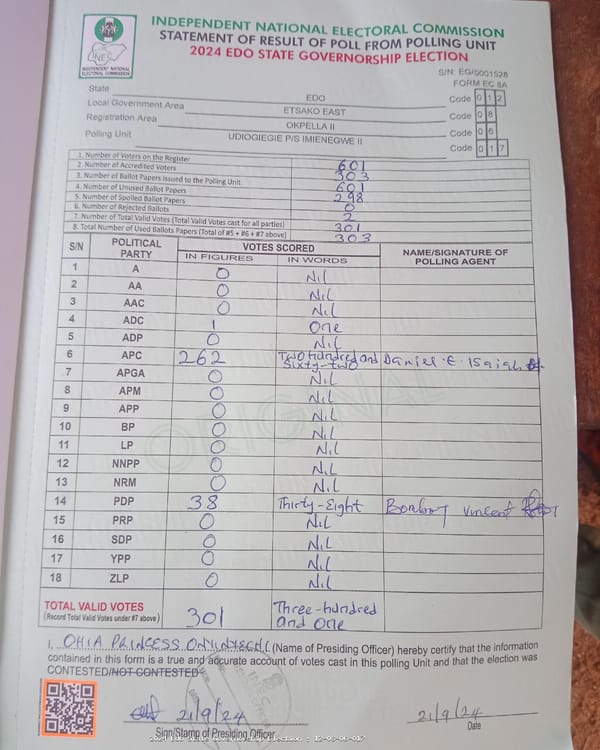 INDEPENDENT NATIONAL ELECTORAL COMMISSION
STATEMENT OF RESULT OF POLL FROM POLLING UNIT
2024 EDO STATE GOVERNORSHIP ELECTION
INEC
INDEPENDENT NATIONAL
ELECTORAL COMMISSION
S/N: EG/0001528
FORM EC 8A
State EDO Code 0 1 2
Local Government Area ETSAKO EAST Code 0 8
Registration Area OKPELLA II Code 0 6
Polling Unit UDIOGIEGIE P/S IMIENEGWE II Code 0 1 7
1. Number of Voters on the Register 601
2. Number of Accredited Voters 303
3. Number of Ballot Papers Issued to the Polling Unit 601
4. Number of Unused Ballot Papers 298
5. Number of Spoiled Ballot Papers 0
6. Number of Rejected Ballots 2
7. Number of Total Valid Votes (Total Valid Votes cast for all parties) 301
8. Total Number of Used Ballots Papers (Total of #5 + #6 + #7 above) 303
S/N POLITICAL PARTY VOTES SCORED NAME/SIGNATURE OF POLLING AGENT
IN FIGURES IN WORDS
1 A 0 Nil
2 AA 0 Nil
3 AAC 0 Nil
4 ADC 1 One
5 ADP 0 Nil
6 APC 262 Two Hundred and Sixty-two Daniel .E. Isaiah
7 APGA 0 Nil
8 APM 0 Nil
9 APP 0 Nil
10 BP 0 Nil
11 LP 0 Nil
12 NNPP 0 Nil
13 NRM 0 Nil
14 PDP 38 Thirty-Eight Vincent
15 PRP 0 Nil
16 SDP 0 Nil
17 YPP 0 Nil
18 ZLP 0 Nil
ORIGINAL
TOTAL VALID VOTES 301 Three-hundred and One
(Record Total Valid Votes under #7 above)
I, OHIA PRINCESS (Name of Presiding Officer) hereby certify that the information
contained in this form is a true and accurate account of votes cast in this polling Unit and that the election was
CONTESTED/NOT CONTESTED
21/9/24 21/9/24
Sign/Stamp of Presiding Officer Date